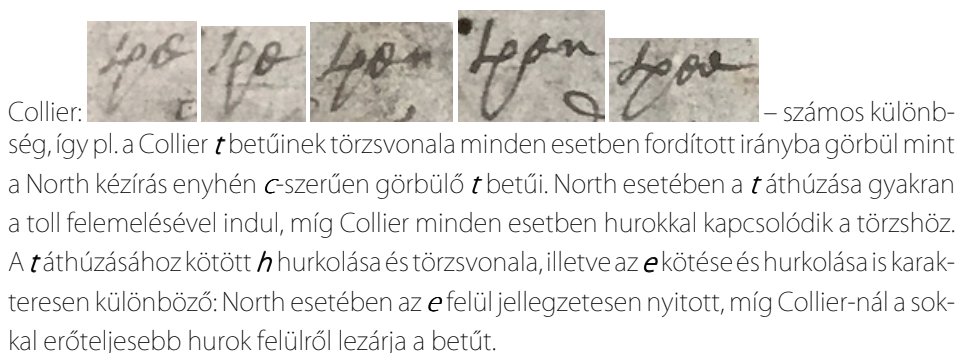 Collier: the the then then the – számos különb-
ség, így pl. a Collier t betűinek törzsvonala minden esetben fordított irányba görbül mint
a North kézírás enyhén c-szerűen görbülő t betűi. North esetében a t áthúzása gyakran
a toll felemelésével indul, míg Collier minden esetben hurokkal kapcsolódik a törzshöz.
A t áthúzásához kötött h hurkolása és törzsvonala, illetve az e kötése és hurkolása is karak-
teresen különböző: North esetében az e felül jellegzetesen nyitott, míg Collier-nál a sok-
kal erőteljesebb hurok felülről lezárja a betűt.